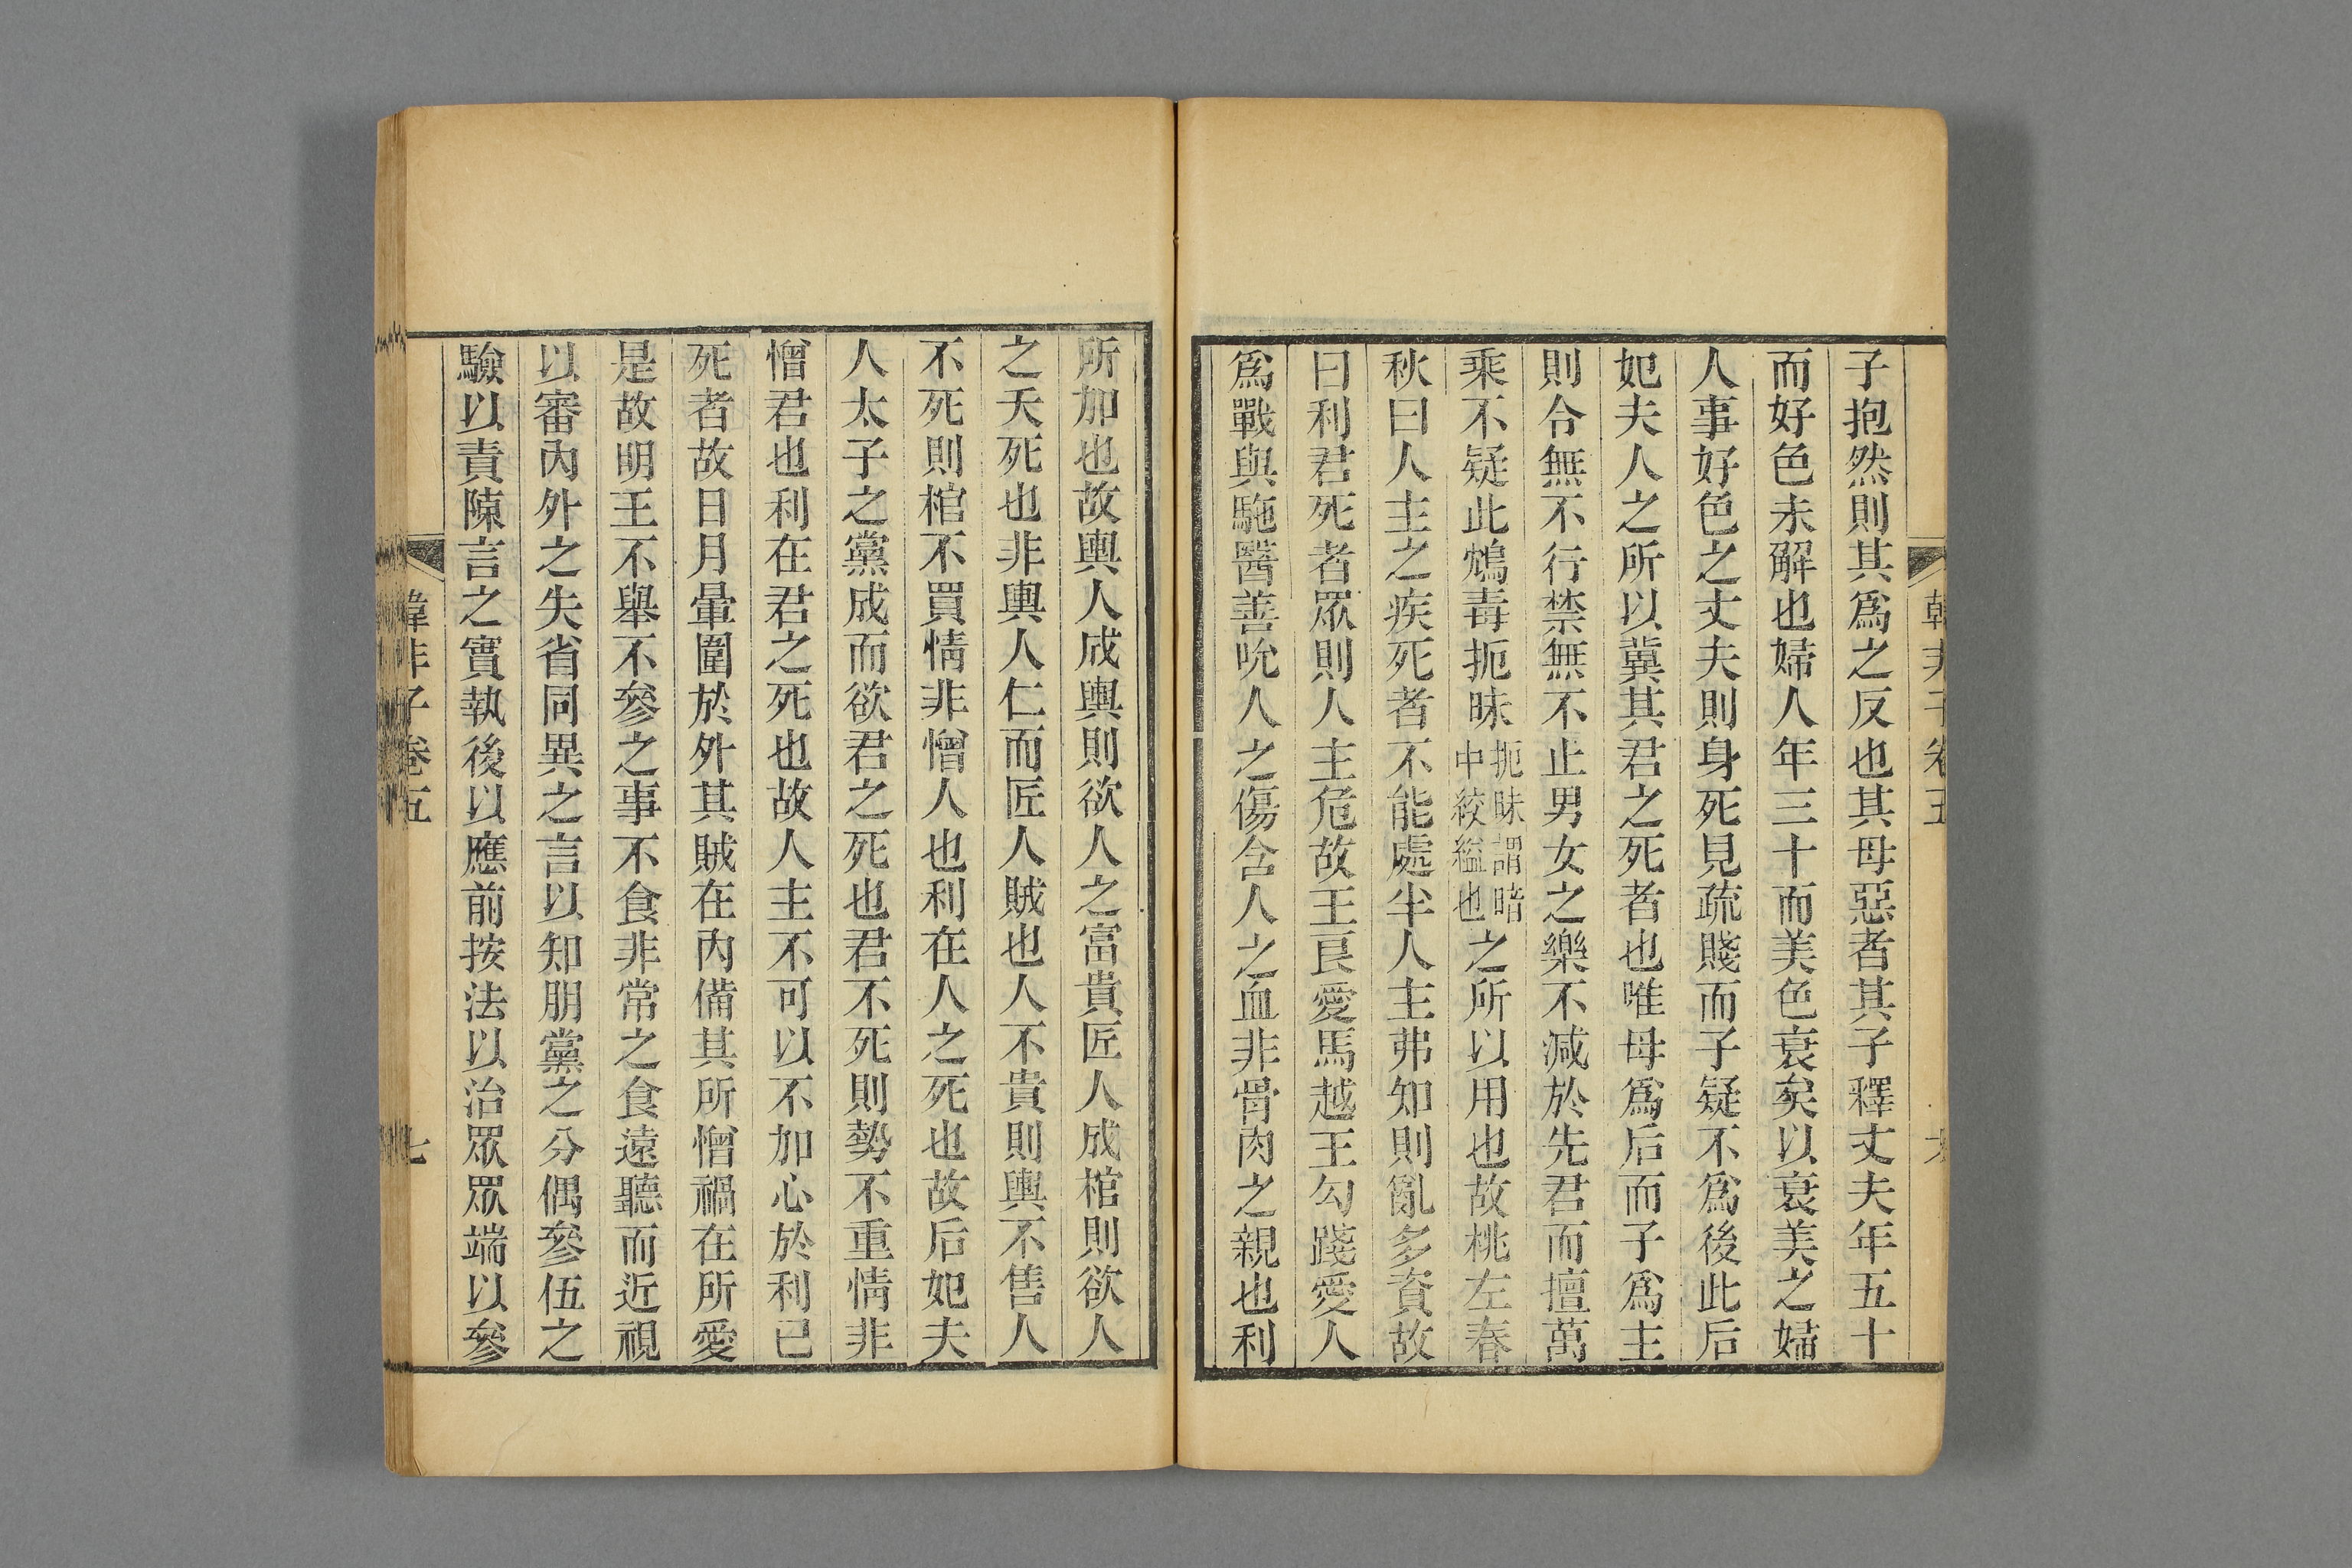 子抱然則其爲之反也其母惡者其子釋丈夫年五十
而好色未解也婦人年三十而美色衰矣以衰美之婦
人事好色之丈夫則身死見疏賤而子疑不爲後此后
妃夫人之所以冀其君之死者也唯母爲后而子爲主
則令無不行禁無不止男女之樂不減於先君而擅萬
乘不疑此鴆毒扼昧扼昧謂暗中絞縊也之所以用也故桃左春
秋曰人主之疾死者不能處半人主弗知則亂多資故
曰利君死者眾則人主危故王良愛馬越王勾踐愛人
爲戰與馳醫善吮人之傷含人之血非骨肉之親也利
韓非子卷五
所加也故輿人成輿則欲人之富貴匠人成棺則欲人
之夭死也非輿人仁而匠人賊也人不貴則輿不售人
不死則棺不買情非憎人也利在人之死也故后妃夫
人太子之黨成而欲君之死也君不死則勢不重情非
憎君也利在君之死也故人主不可以不加心於利已
死者故日月暈圍於外其賊在內備其所憎禍在所愛
是故明王不舉不參之事不食非常之食遠聽而近視
以審內外之失省同異之言以知朋黨之分偶參伍之
驗以責陳言之實執後以應前按法以治眾眾端以參
韓非子卷五
七